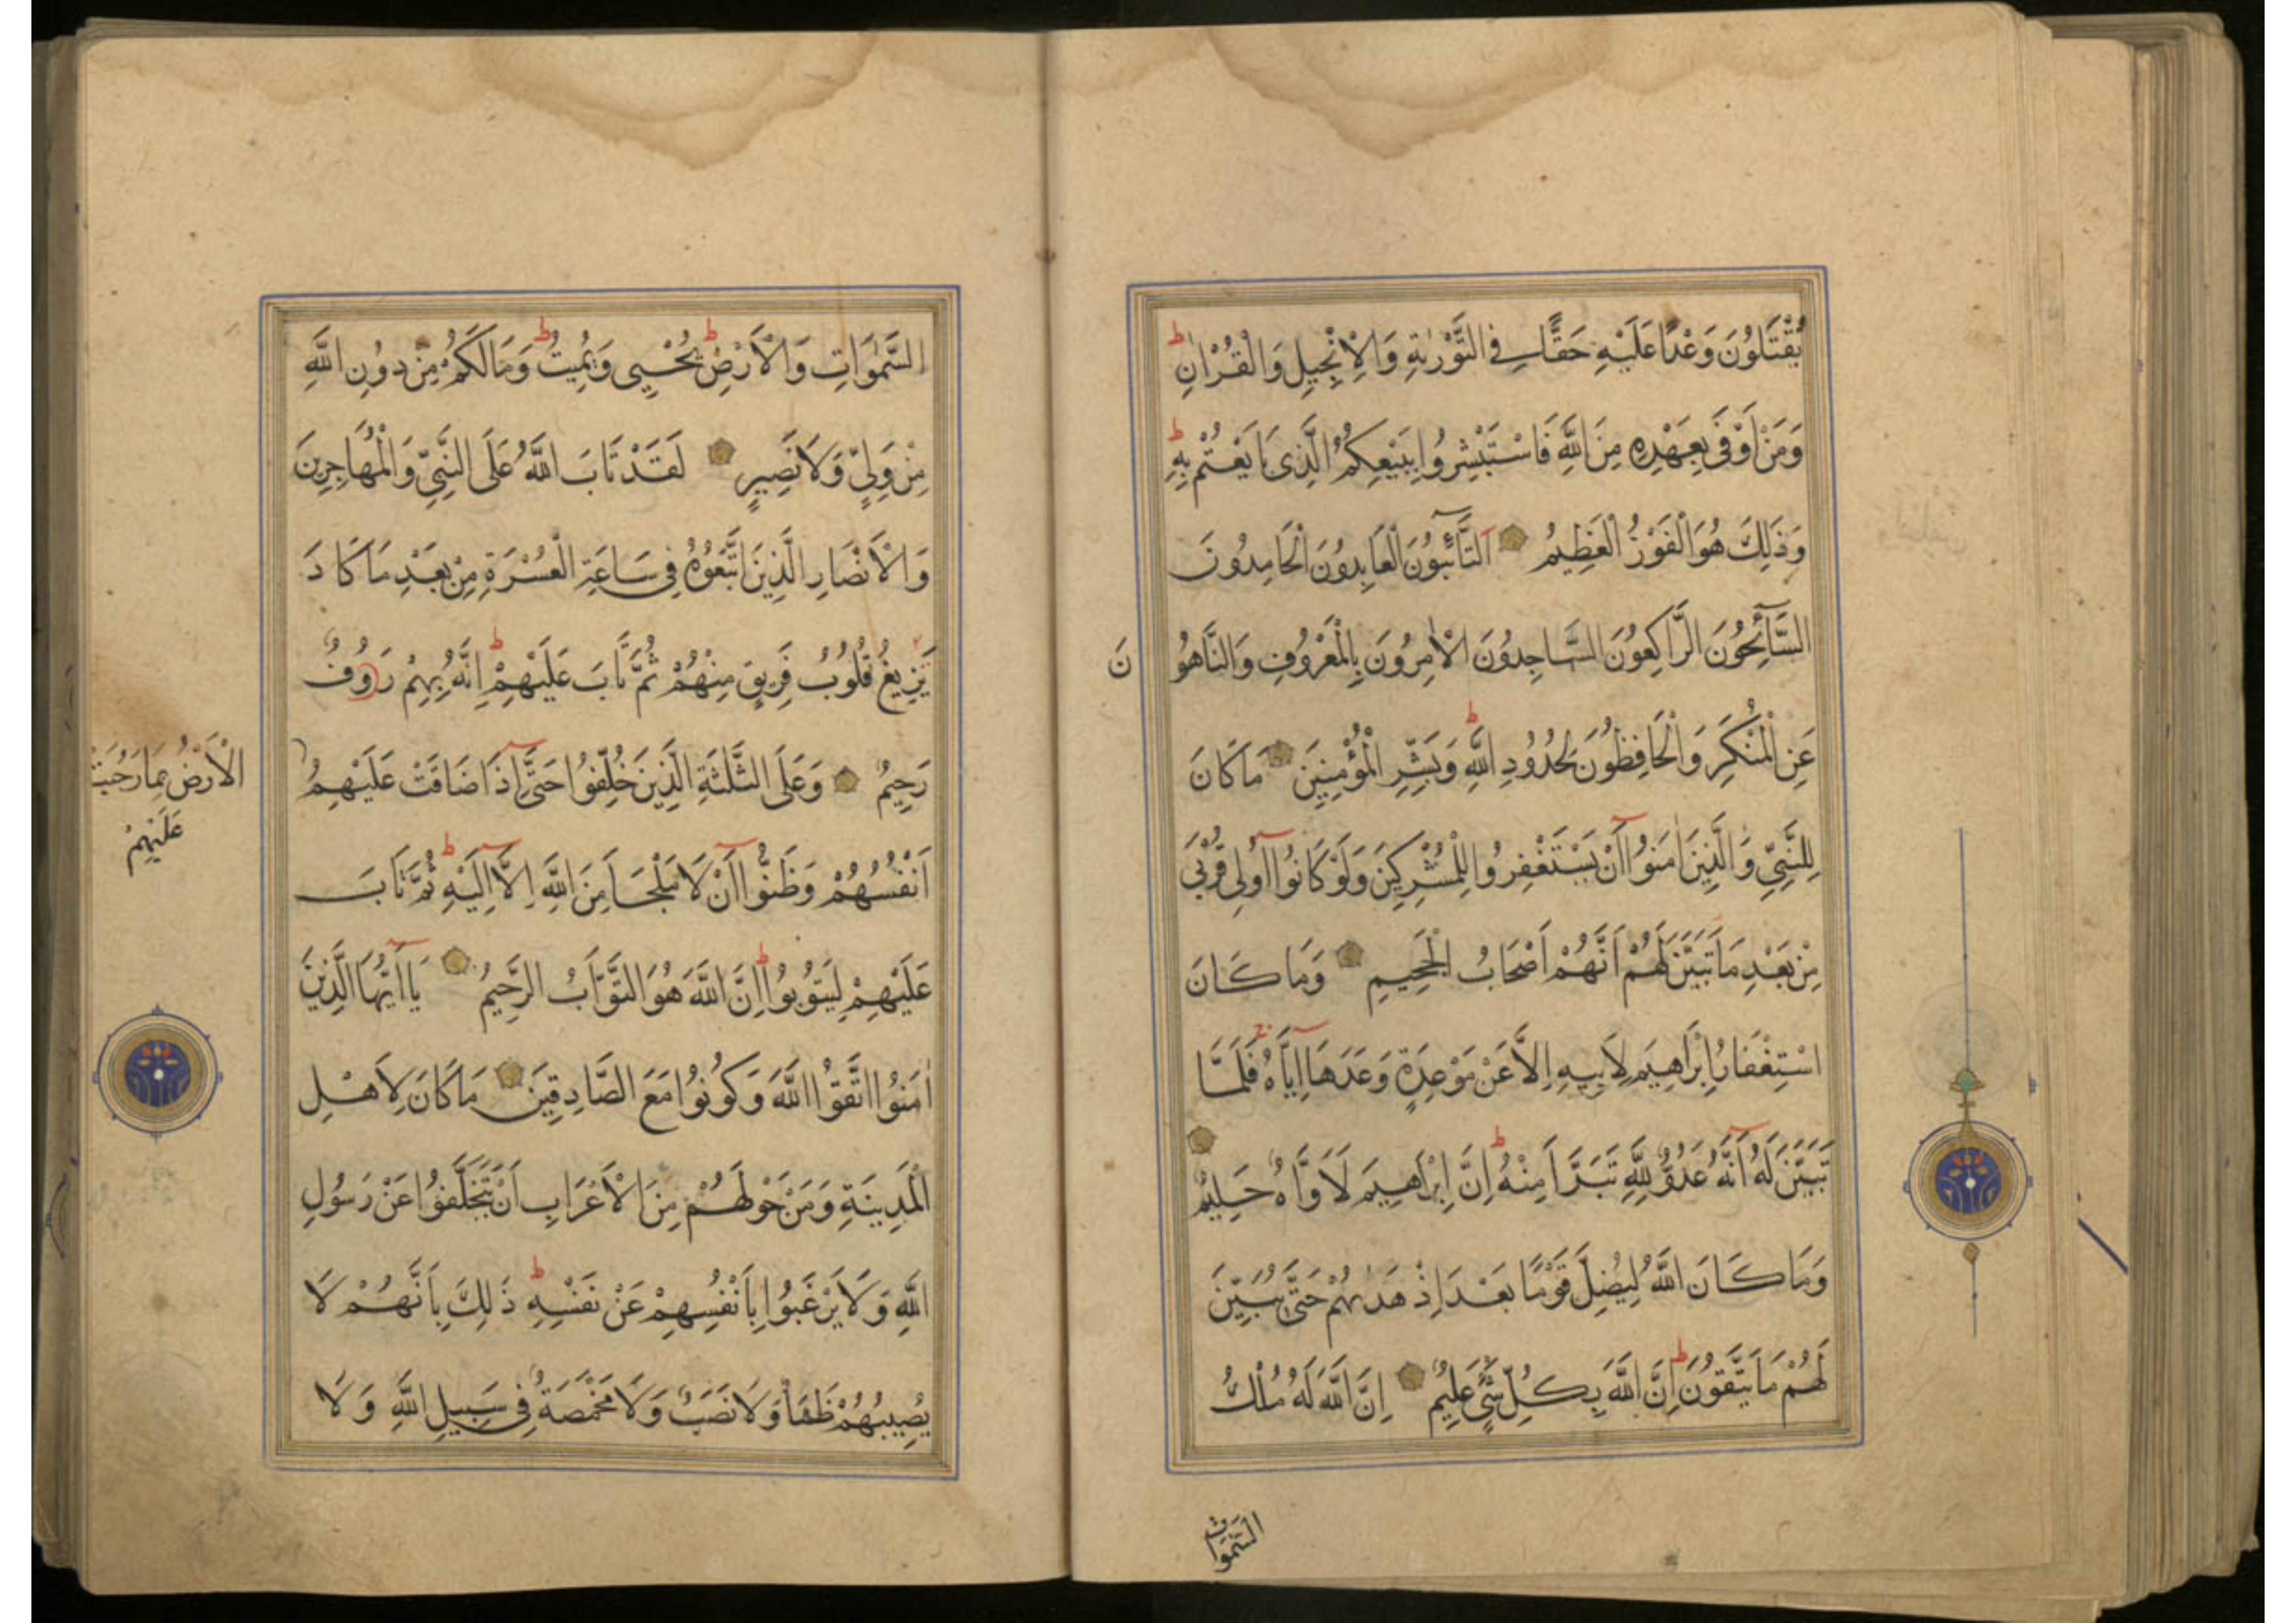 يُقْتَلُونَ وَعْدًا عَلَيْهِ حَقًّا فِي التَّوْرٰيةِ وَالْاِنْجِيلِ وَالْقُرْاٰنِ ط
وَمَنْ اَوْفٰى بِعَهْدِهِ مِنَ اللّٰهِ فَاسْتَبْشِرُوا بِبَيْعِكُمُ الَّذِى بَايَعْتُمْ بِهِ ط
وَذَلِكَ هُوَ الْفَوْزُ الْعَظِيمُ اَلتَّآئِبُونَ الْعَابِدُونَ الْحَامِدُونَ
السَّآئِحُونَ الرَّاكِعُونَ السَّاجِدُونَ الْاٰمِرُونَ بِالْمَعْرُوفِ وَالنَّاهُو نَ
عَنِ الْمُنْكَرِ وَالْحَافِظُونَ لِحُدُودِ اللّٰهِ ط وَبَشِّرِ الْمُؤْمِنِينَ مَا كَانَ
لِلنَّبِيِّ وَالَّذِينَ اٰمَنُوآ اَنْ يَسْتَغْفِرُوا لِلْمُشْرِكِينَ وَلَوْ كَانُوآ اُولِى قُرْبٰى
مِنْ بَعْدِ مَا تَبَيَّنَ لَهُمْ اَنَّهُمْ اَصْحَابُ الْجَحِيمِ وَمَا كَانَ
اسْتِغْفَارُ اِبْرَاهِيمَ لِاَبِيهِ اِلَّا عَنْ مَوْعِدَةٍ وَعَدَهَآ اِيَّاهُ ج فَلَمَّا
تَبَيَّنَ لَهُ اَنَّهُ عَدُوٌّ لِلّٰهِ تَبَرَّاَ مِنْهُ ط اِنَّ اِبْرَاهِيمَ لَاَوَّاهٌ حَلِيمٌ
وَمَا كَانَ اللّٰهُ لِيُضِلَّ قَوْمًا بَعْدَ اِذْ هَدٰيهُمْ حَتّٰى يُبَيِّنَ
لَهُمْ مَا يَتَّقُونَ ط اِنَّ اللّٰهَ بِكُلِّ شَيْءٍ عَلِيمٌ اِنَّ اللّٰهَ لَهُ مُلْكُ
السَّمٰوَاتِ
السَّمٰوَاتِ وَالْاَرْضِ ط يُحْيِى وَيُمِيتُ ط وَمَا لَكُمْ مِنْ دُونِ اللّٰهِ
مِنْ وَلِيٍّ وَلَا نَصِيرٍ لَقَدْ تَابَ اللّٰهُ عَلَى النَّبِيِّ وَالْمُهَاجِرِينَ
وَالْاَنْصَارِ الَّذِينَ اتَّبَعُوهُ فِى سَاعَةِ الْعُسْرَةِ مِنْ بَعْدِ مَا كَادَ
يَزِيغُ قُلُوبُ فَرِيقٍ مِنْهُمْ ثُمَّ تَابَ عَلَيْهِمْ ط اِنَّهُ بِهِمْ رَوُفٌ
رَحِيمٌ وَعَلَى الثَّلٰثَةِ الَّذِينَ خُلِّفُوا حَتّٰىٓ اِذَا ضَاقَتْ عَلَيْهِمُ
الْاَرْضُ بِمَا رَحُبَتْ
عَلَيْهِمْ
اَنْفُسُهُمْ وَظَنُّوآ اَنْ لَا مَلْجَاَ مِنَ اللّٰهِ اِلَّآ اِلَيْهِ ط ثُمَّ تَابَ
عَلَيْهِمْ لِيَتُوبُوا ط اِنَّ اللّٰهَ هُوَ التَّوَّابُ الرَّحِيمُ يَآ اَيُّهَا الَّذِينَ
اٰمَنُوا اتَّقُوا اللّٰهَ وَكُونُوا مَعَ الصَّادِقِينَ مَا كَانَ لِاَهْلِ
الْمَدِينَةِ وَمَنْ حَوْلَهُمْ مِنَ الْاَعْرَابِ اَنْ يَتَخَلَّفُوا عَنْ رَسُولِ
اللّٰهِ وَلَا يَرْغَبُوا بِاَنْفُسِهِمْ عَنْ نَفْسِهِ ط ذَلِكَ بِاَنَّهُمْ لَا
يُصِيبُهُمْ ظَمَاٌ وَلَا نَصَبٌ وَلَا مَخْمَصَةٌ فِى سَبِيلِ اللّٰهِ وَلَا